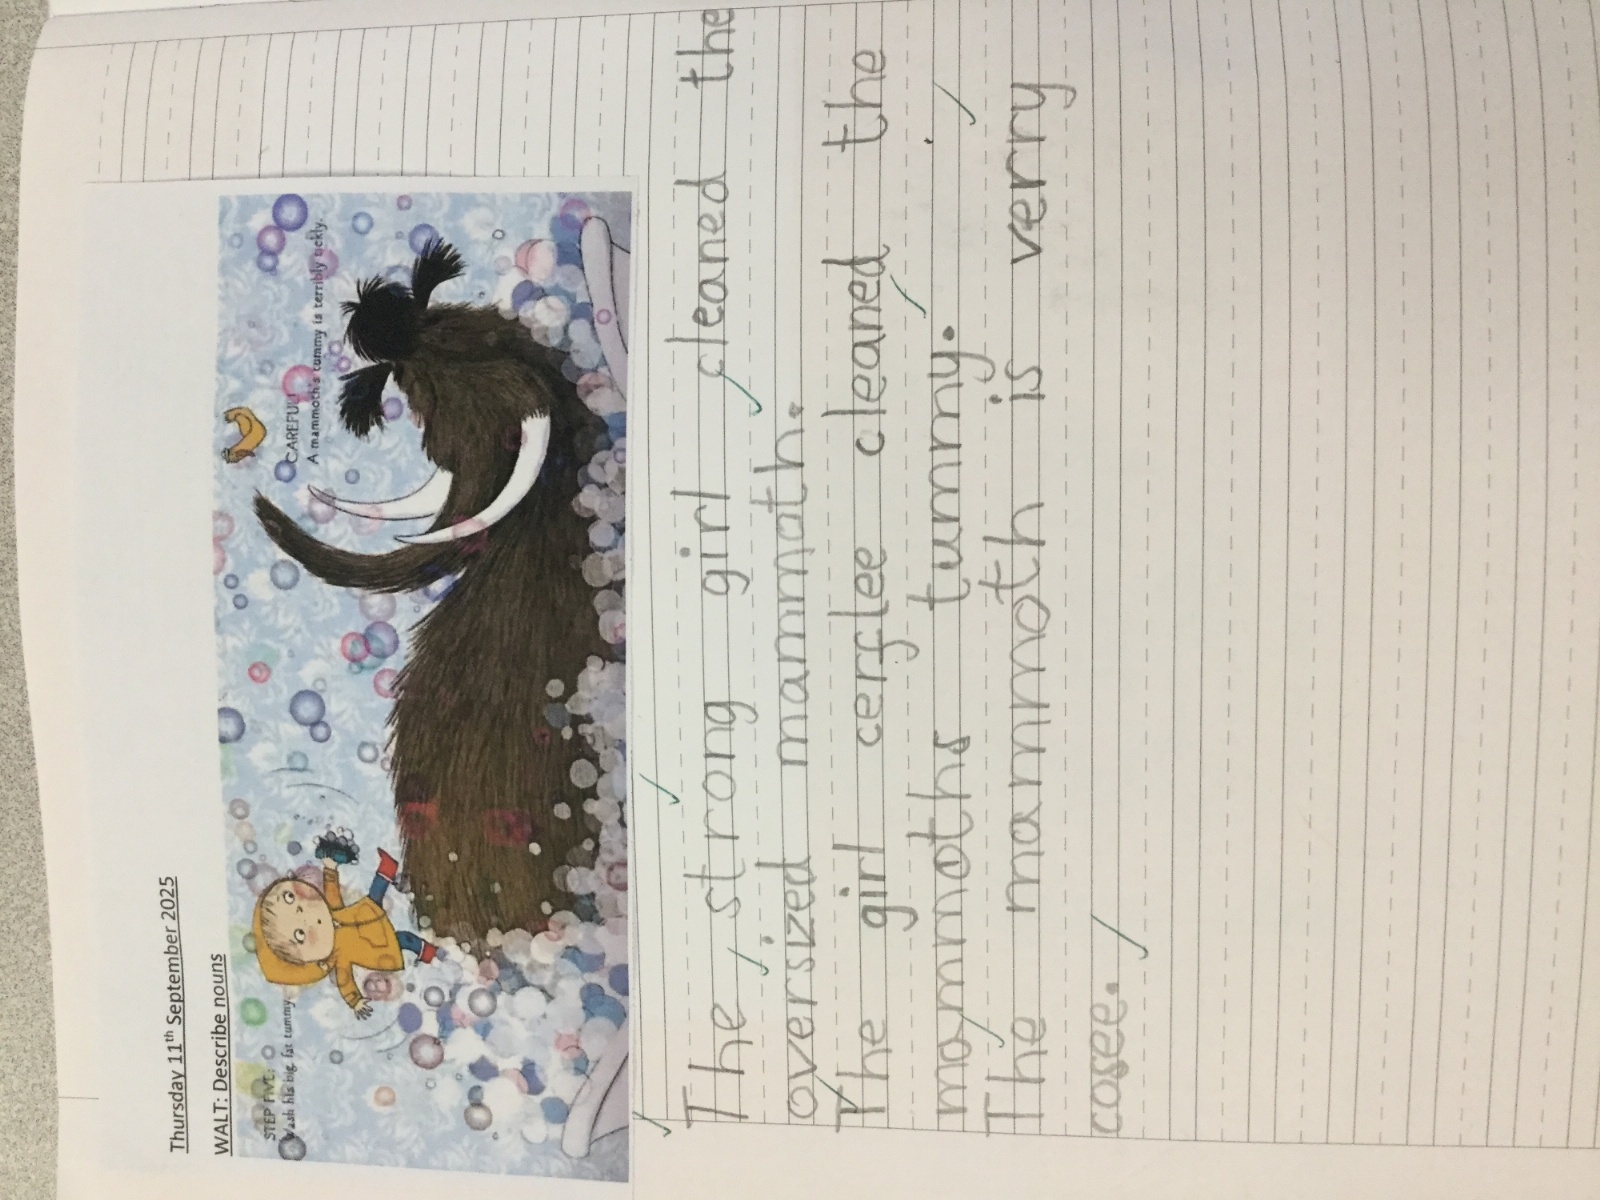 Thursday 11th September 2025
WALT: Describe nouns
STEP FIVE:
Wash his big fat tummy.
CAREFUL!
A mammoth's tummy is terribly tickly.
The strong girl cleaned the
oversized mammoth.
The girl cerflee cleaned the
mammoths tummy.
The mammoth is verry
cosee.